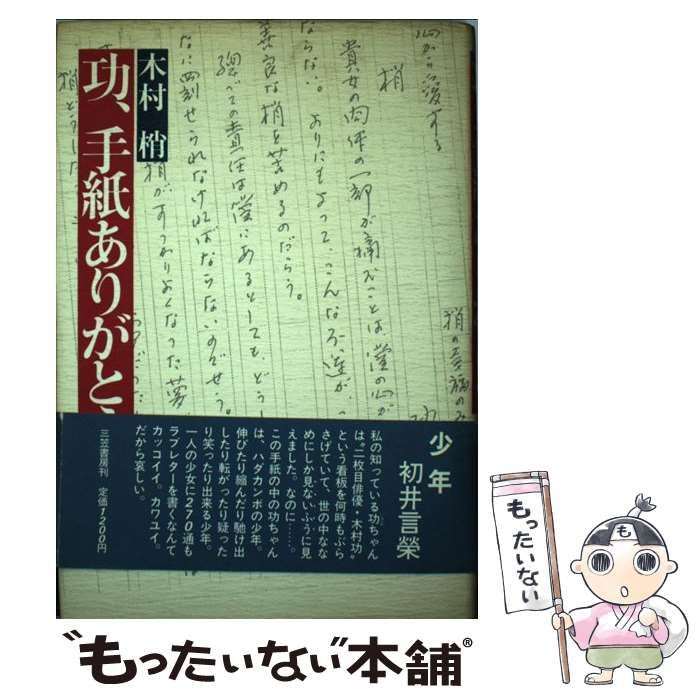 木村 梢
功、手紙ありがと
心から愛する
梢
貴女の肉体の一部が痛むことは僕の心が
ならない。
こんな不運が、
善良な梢を苦めるのだらう。
総べての責任は僕にあるとしても、どうし
せられなければならないのでせう。
梢がすっかりよくなった夢
梢どうした
少年
初井言榮
私の知っている功ちゃん
は、“二枚目俳優・木村功”
という看板を何時もぶら
さげていて、世の中なな
めにしか見ないふうに見
えました。なのに……。
この手紙の中の功ちゃん
は、ハダカンボの少年。
伸びたり縮んだり馳け出
したり転がったり疑った
り笑ったり出来る少年。
一人の少女に210通も
ラブレターを書くなんて
カッコイイ。カワユイ。
だから哀しい。
三笠書房刊 定価1200円
もったいない
“もったいない本舗®